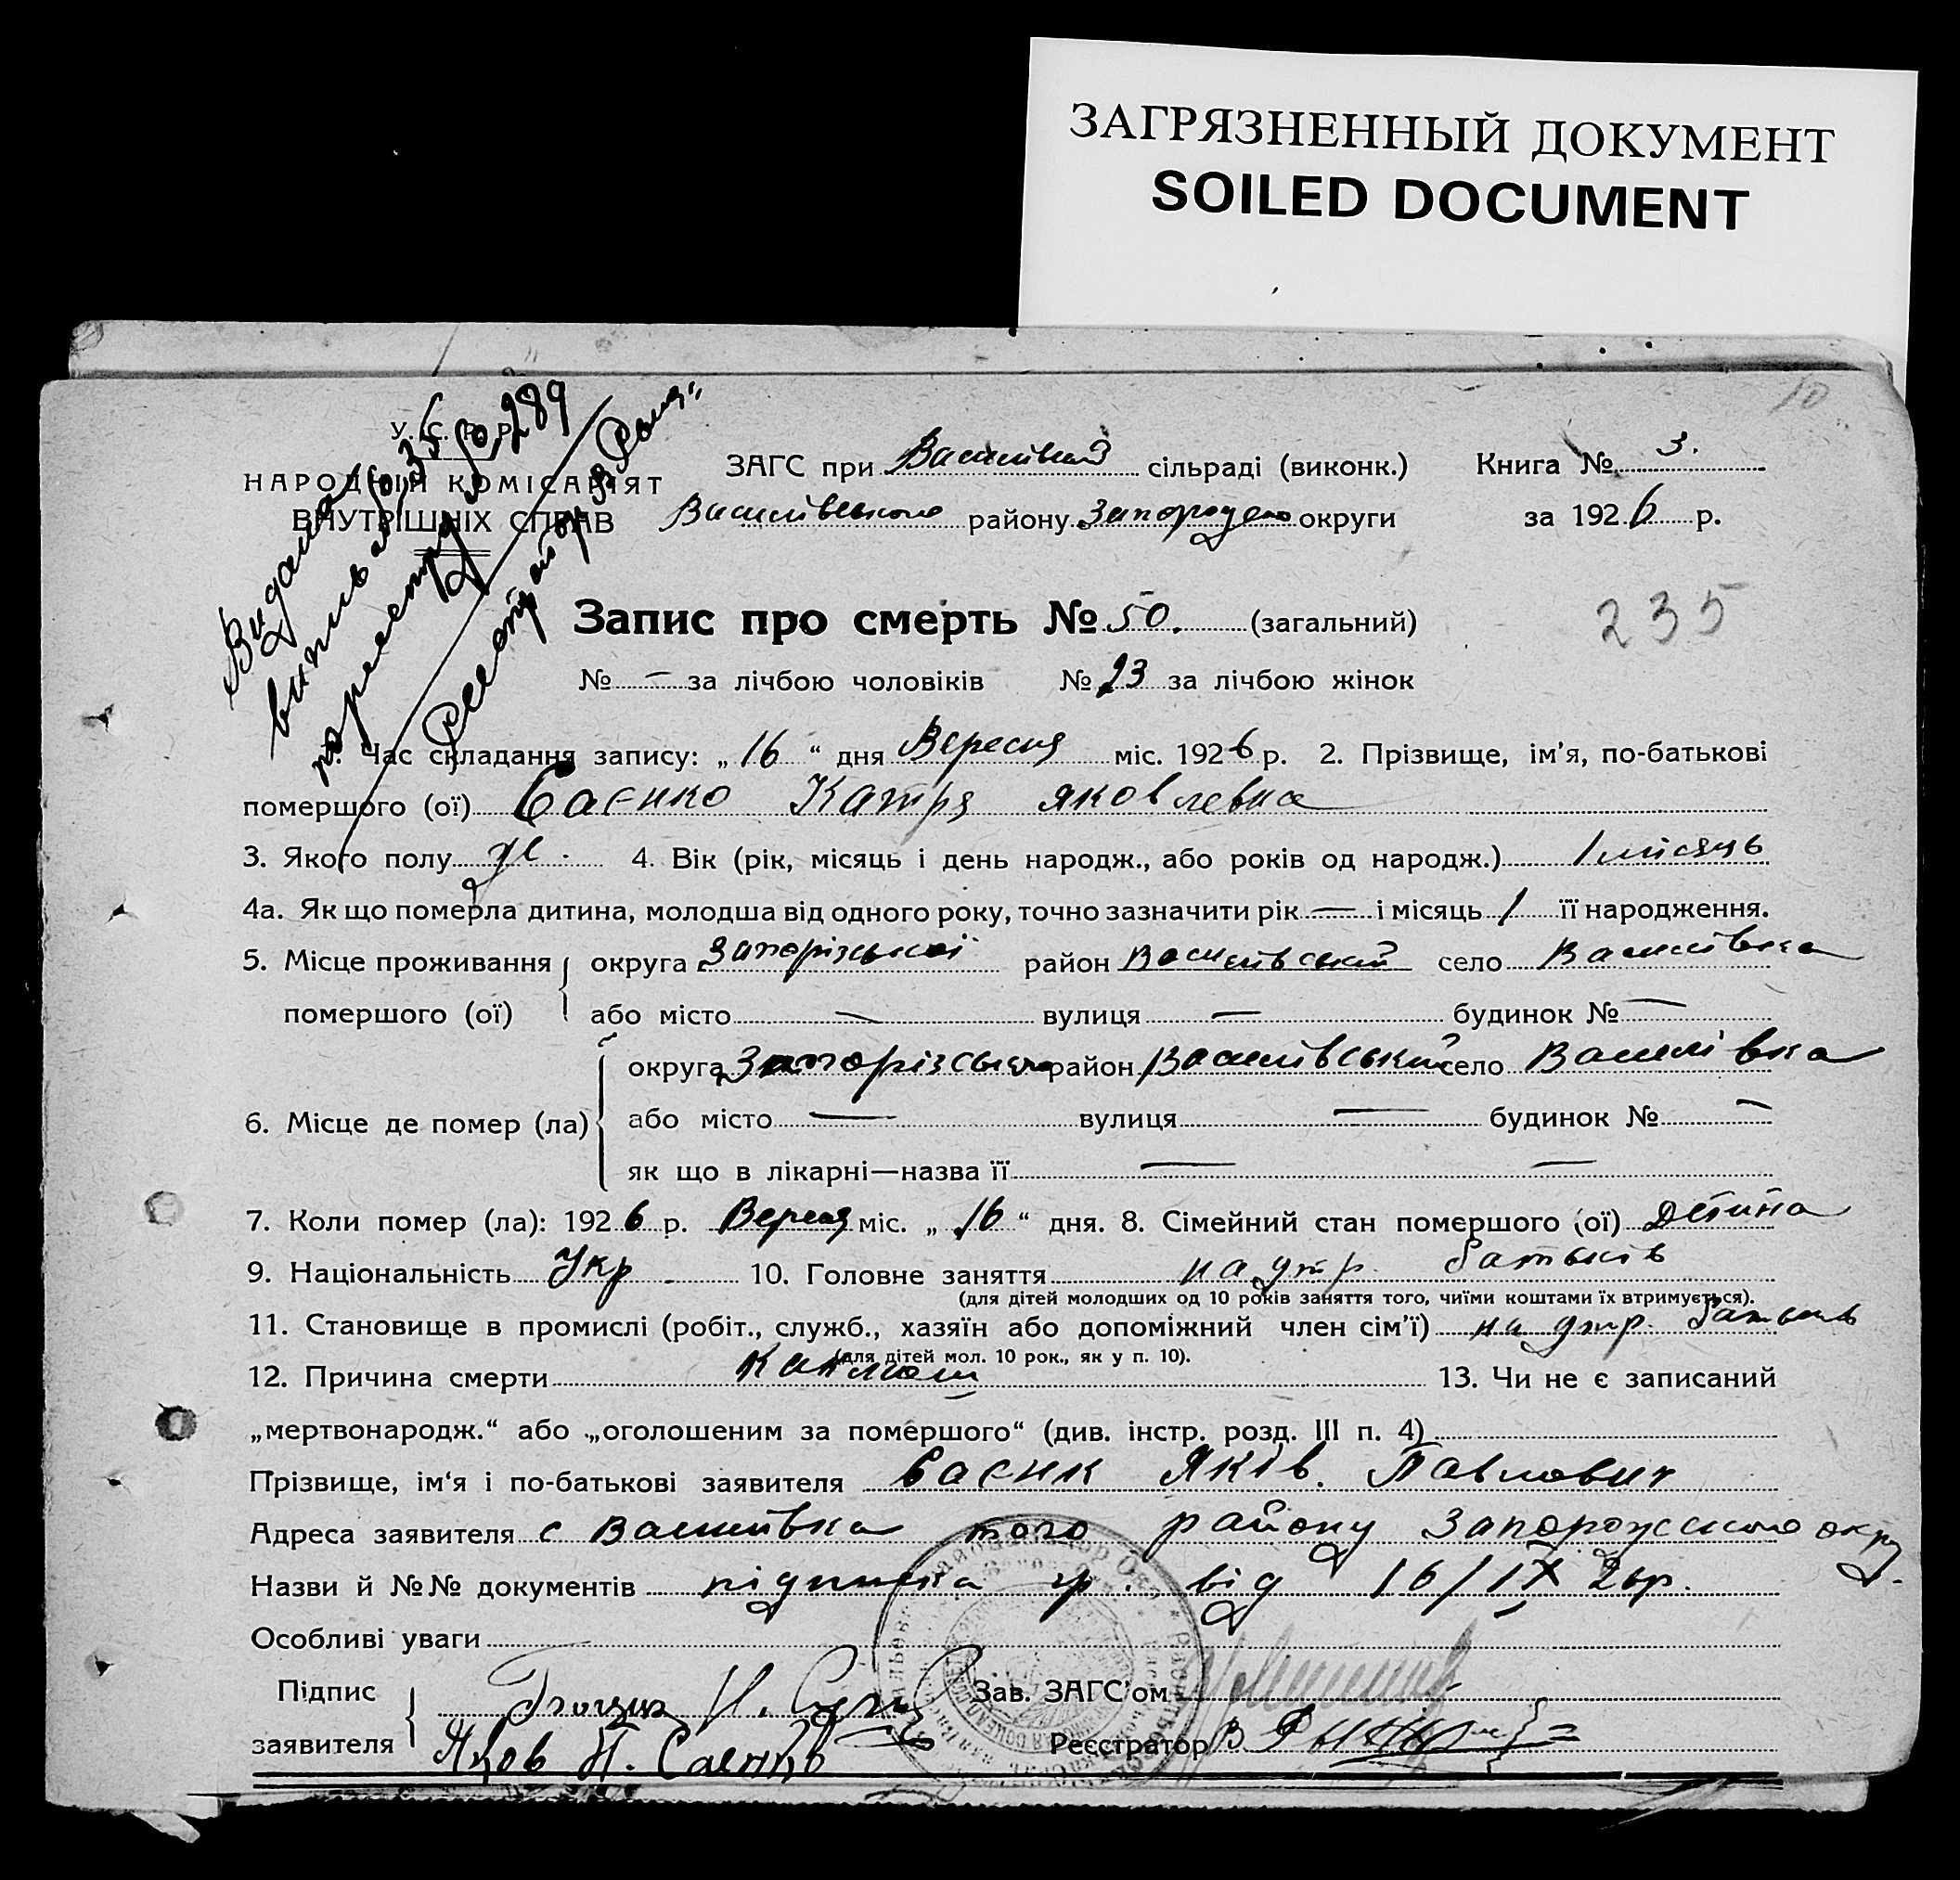 ЗАГРЯЗНЕННЫЙ ДОКУМЕНТ
SOILED DOCUMENT
10
У. С. Р. Р.
НАРОДНІЙ КОМІСАРІЯТ
ВНУТРІШНІХ СПРАВ
Видана
289
ЗАГС при сільраді (виконк.) Книга № 3.
Василівського району округи за 1926 р.
Запис про смерть № 50. (загальний)
235
№ — за лічбою чоловіків № 23 за лічбою жінок
1. Час складання запису: „16“ дня Вересня міс. 1926 р. 2. Прізвище, ім'я, по-батькові
помершого (ої) Саєнко Катря Яковлевна
3. Якого полу ж. 4. Вік (рік, місяць і день народж., або років од народж.) 1 місяць
4а. Як що померла дитина, молодша від одного року, точно зазначити рік — і місяць 1 її народження.
5. Місце проживання округа Запорізької район Василівський село Василівка
помершого (ої) або місто — вулиця — будинок № —
округа район Василівський село Василівка
6. Місце де помер (ла) або місто — вулиця — будинок № —
як що в лікарні—назва її — —
7. Коли помер (ла): 1926 р. Вересня міс. „16“ дня. 8. Сімейний стан помершого (ої) Дітина
9. Національність Укр. 10. Головне заняття на утр. батьків
(для дітей молодших од 10 років заняття того, чиїми коштами їх втримується).
11. Становище в промислі (робіт., служб., хазяїн або допоміжний член сім'ї) на утр. батьків
(для дітей мол. 10 рок., як у п. 10).
12. Причина смерти Кашлюк 13. Чи не є записаний
„мертвонародж.“ або „оголошеним за помершого“ (див. інстр. розд. III п. 4)
Прізвище, ім'я і по-батькові заявителя Саєнк Яків. Павлович
Адреса заявителя с Василівка того району Запорожського окру.
Назви й №№ документів підписка гр. від 16/IX 26р.
Особливі уваги
Підпис Зав. ЗАГС'ом
заявителя Яков П. Саенко Реєстратор